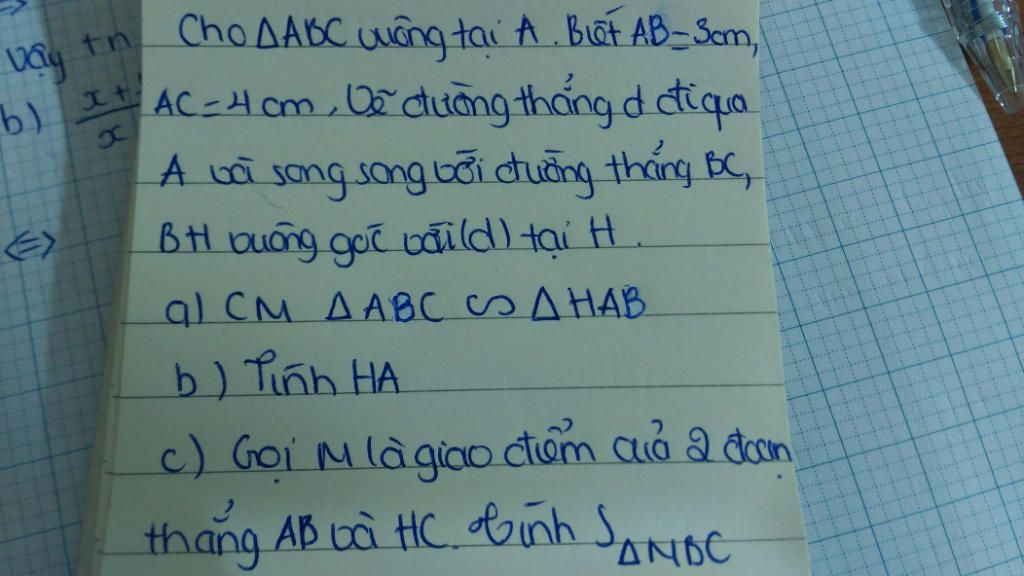 vậy +n
b) x+
x
<=>
Cho ΔABC vuông tại A. Biết AB=3cm,
AC=4cm, Vẽ đường thẳng d đi qua
A và song song với đường thẳng BC,
BH vuông góc với (d) tại H.
a) CM ΔABC ∽ ΔHAB
b) Tính HA
c) Gọi M là giao điểm của 2 đoạn
thẳng AB và HC. Tính SΔMBC